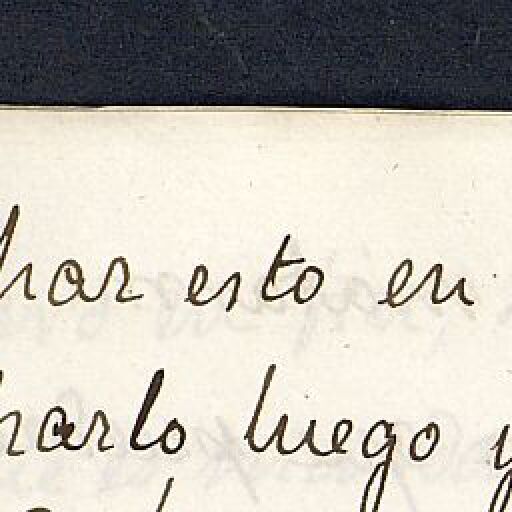 har esto en
harlo luego y